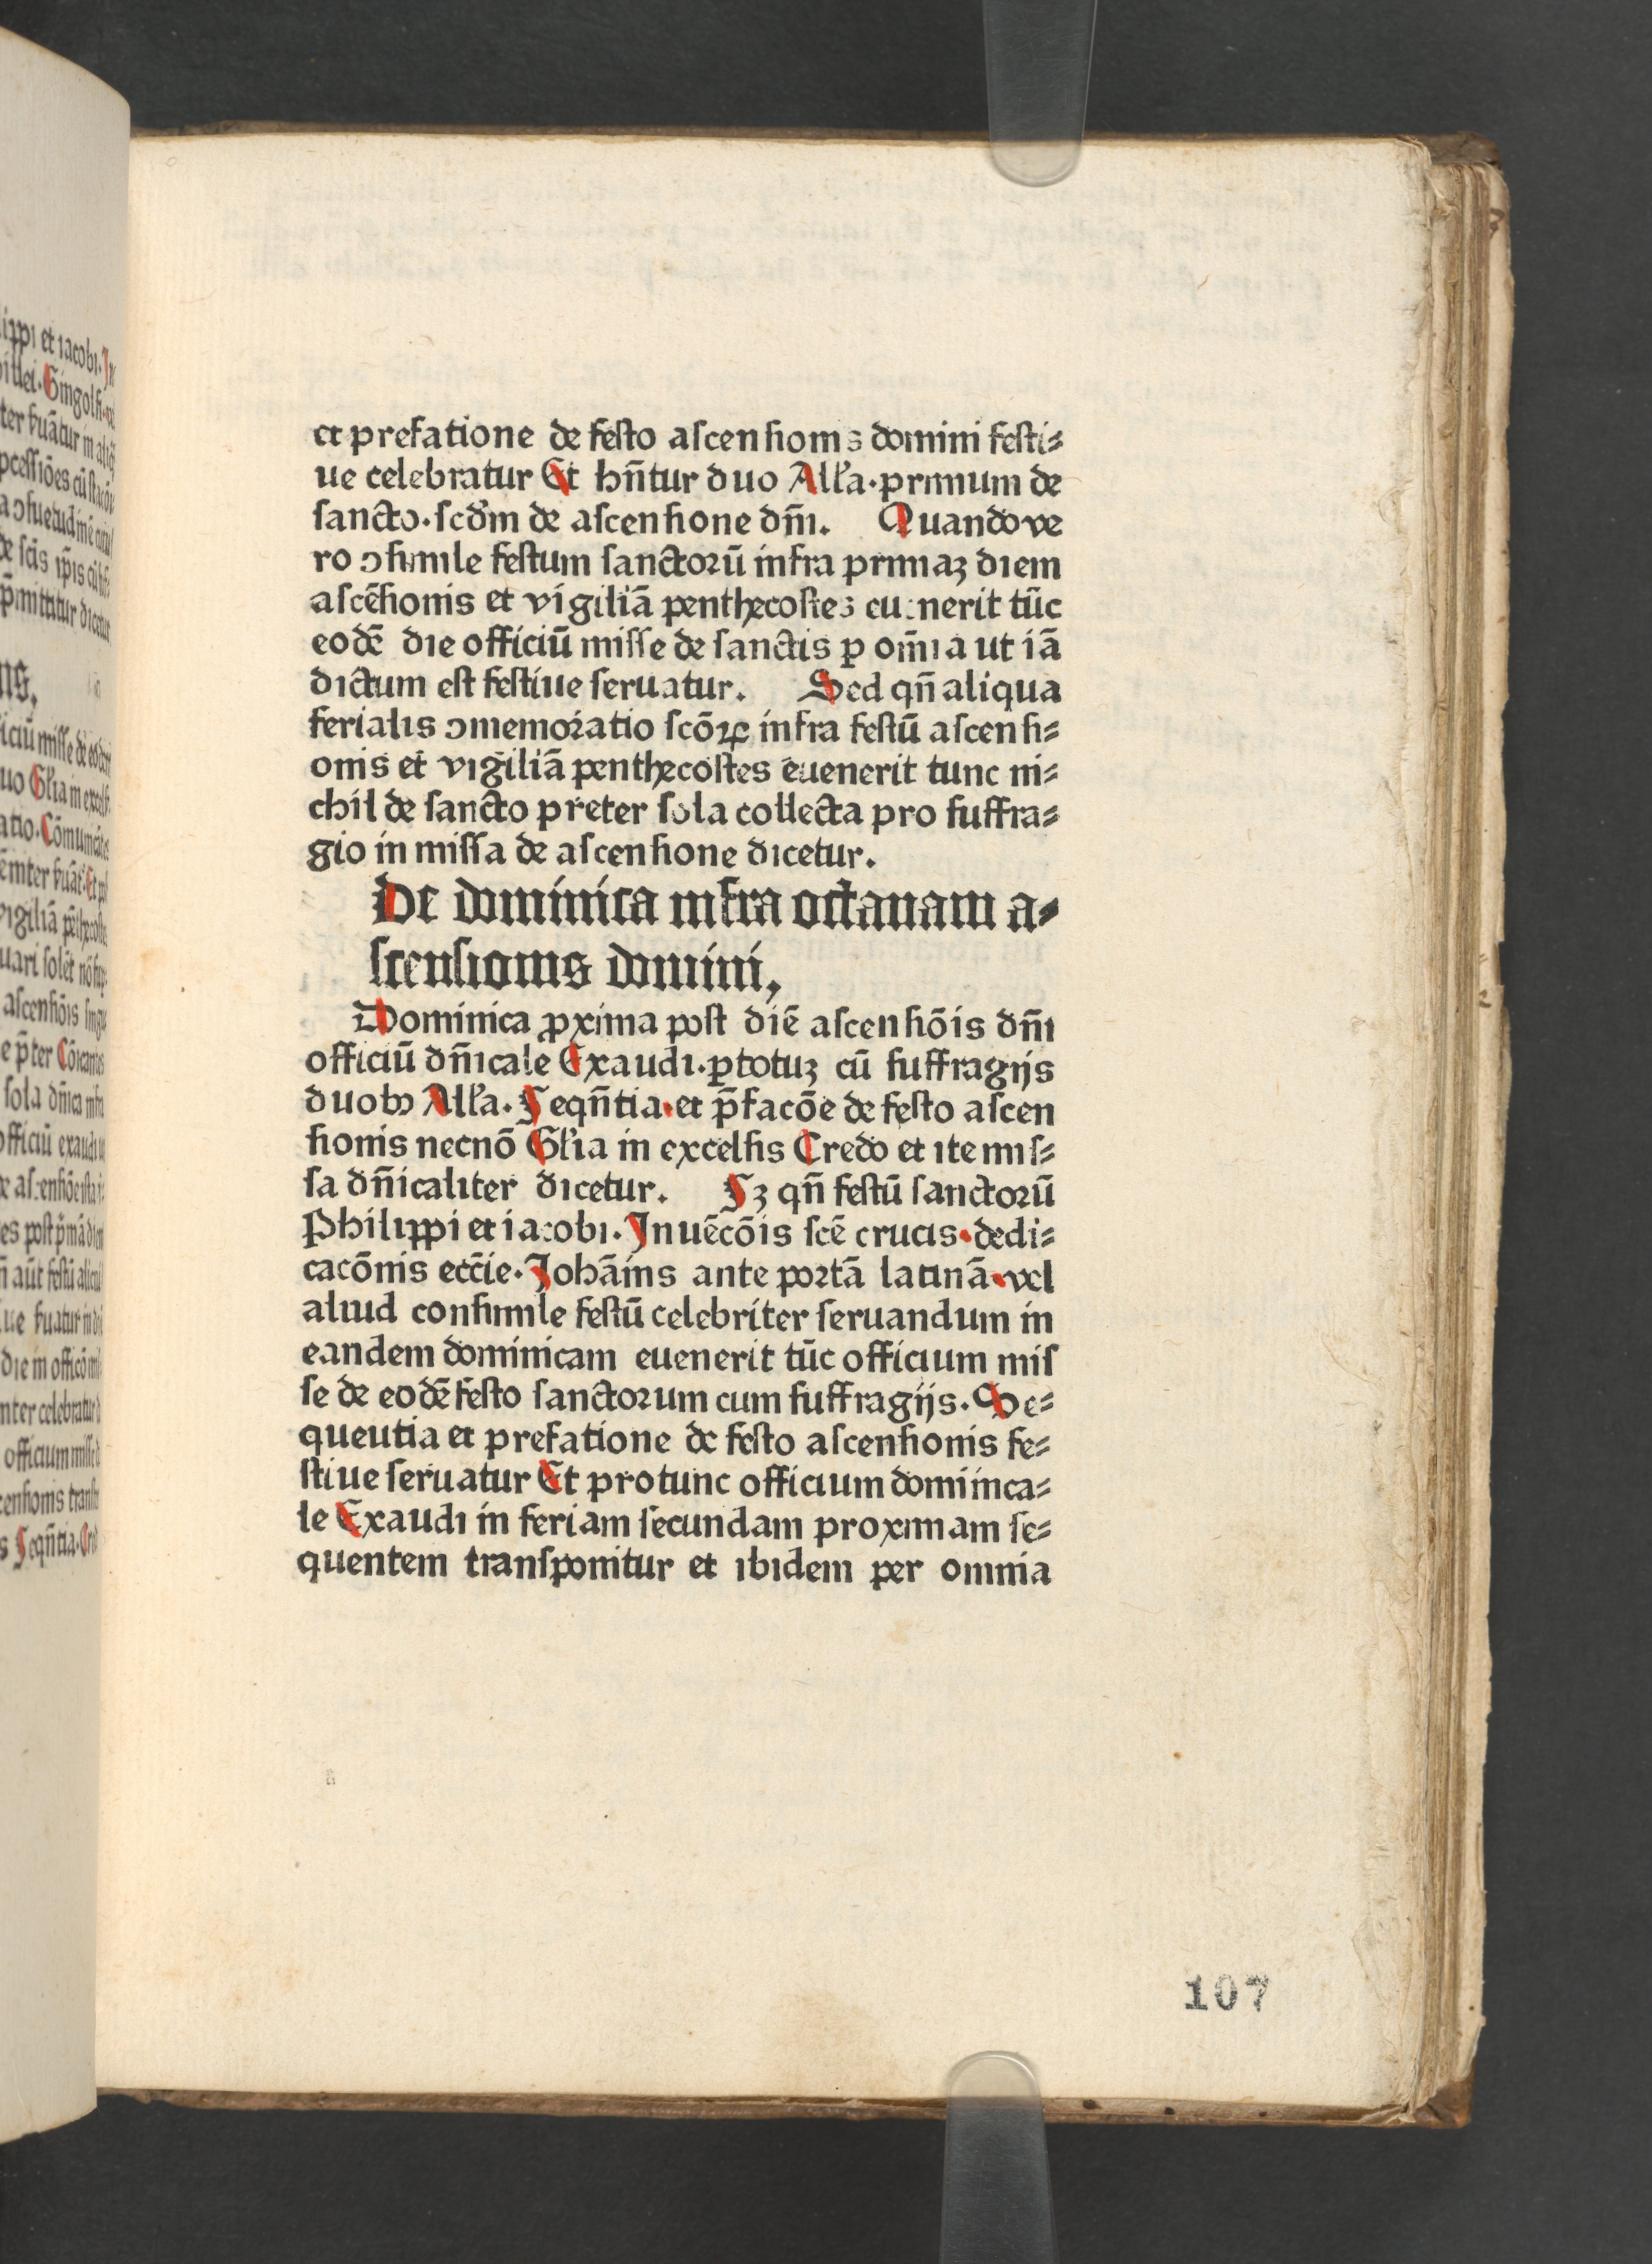 et prefatione de festo ascensionis domini festi⸗
ue celebratur Et hn̄tur duo All'a·primum de
sancto·scd'm de ascensione dn̄i. Quando ve
ro ↄsimile festum sanctorū infra primaz diem
ascēsionis et vigiliā penthecostes euenerit tūc
eodē die officiū misse de sanctis ꝑ om̄ia ut iā
dictum est festiue seruatur. Sed qn̄ aliqua
ferialis ↄmemoratio scōꝝ infra festū ascensi⸗
onis et vigiliā penthecostes euenerit tunc ni⸗
chil de sancto preter sola collecta pro suffra⸗
gio in missa de ascensione dicetur.
De dominica infra octauam a⸗
scensionis domini,
Dominica ꝓxima post diē ascensiōis dn̄i
officiū dn̄icale Exaudi·ꝑ totuz cū suffragijs
duobꝫ All'a. Seqn̄tia·et p̄facōe de festo ascen
sionis necnō Gl'ia in excelsis Credo et ite mis⸗
sa dn̄icaliter dicetur. Sz qn̄ festū sanctorū
Philippi et iacobi. Inuēcōis scē crucis·dedi⸗
cacōnis ecc̄ie. Johānis ante portā latinā·vel
aliud consimile festū celebriter seruandum in
eandem dominicam euenerit tūc officium mis
se de eodē festo sanctorum cum suffragijs. Se⸗
queutia et prefatione de festo ascensionis fe⸗
stiue seruatur Et pro tunc officium domiinca⸗
le Exaudi in feriam secundam proximam se⸗
quentem transponitur et ibidem per omnia
107